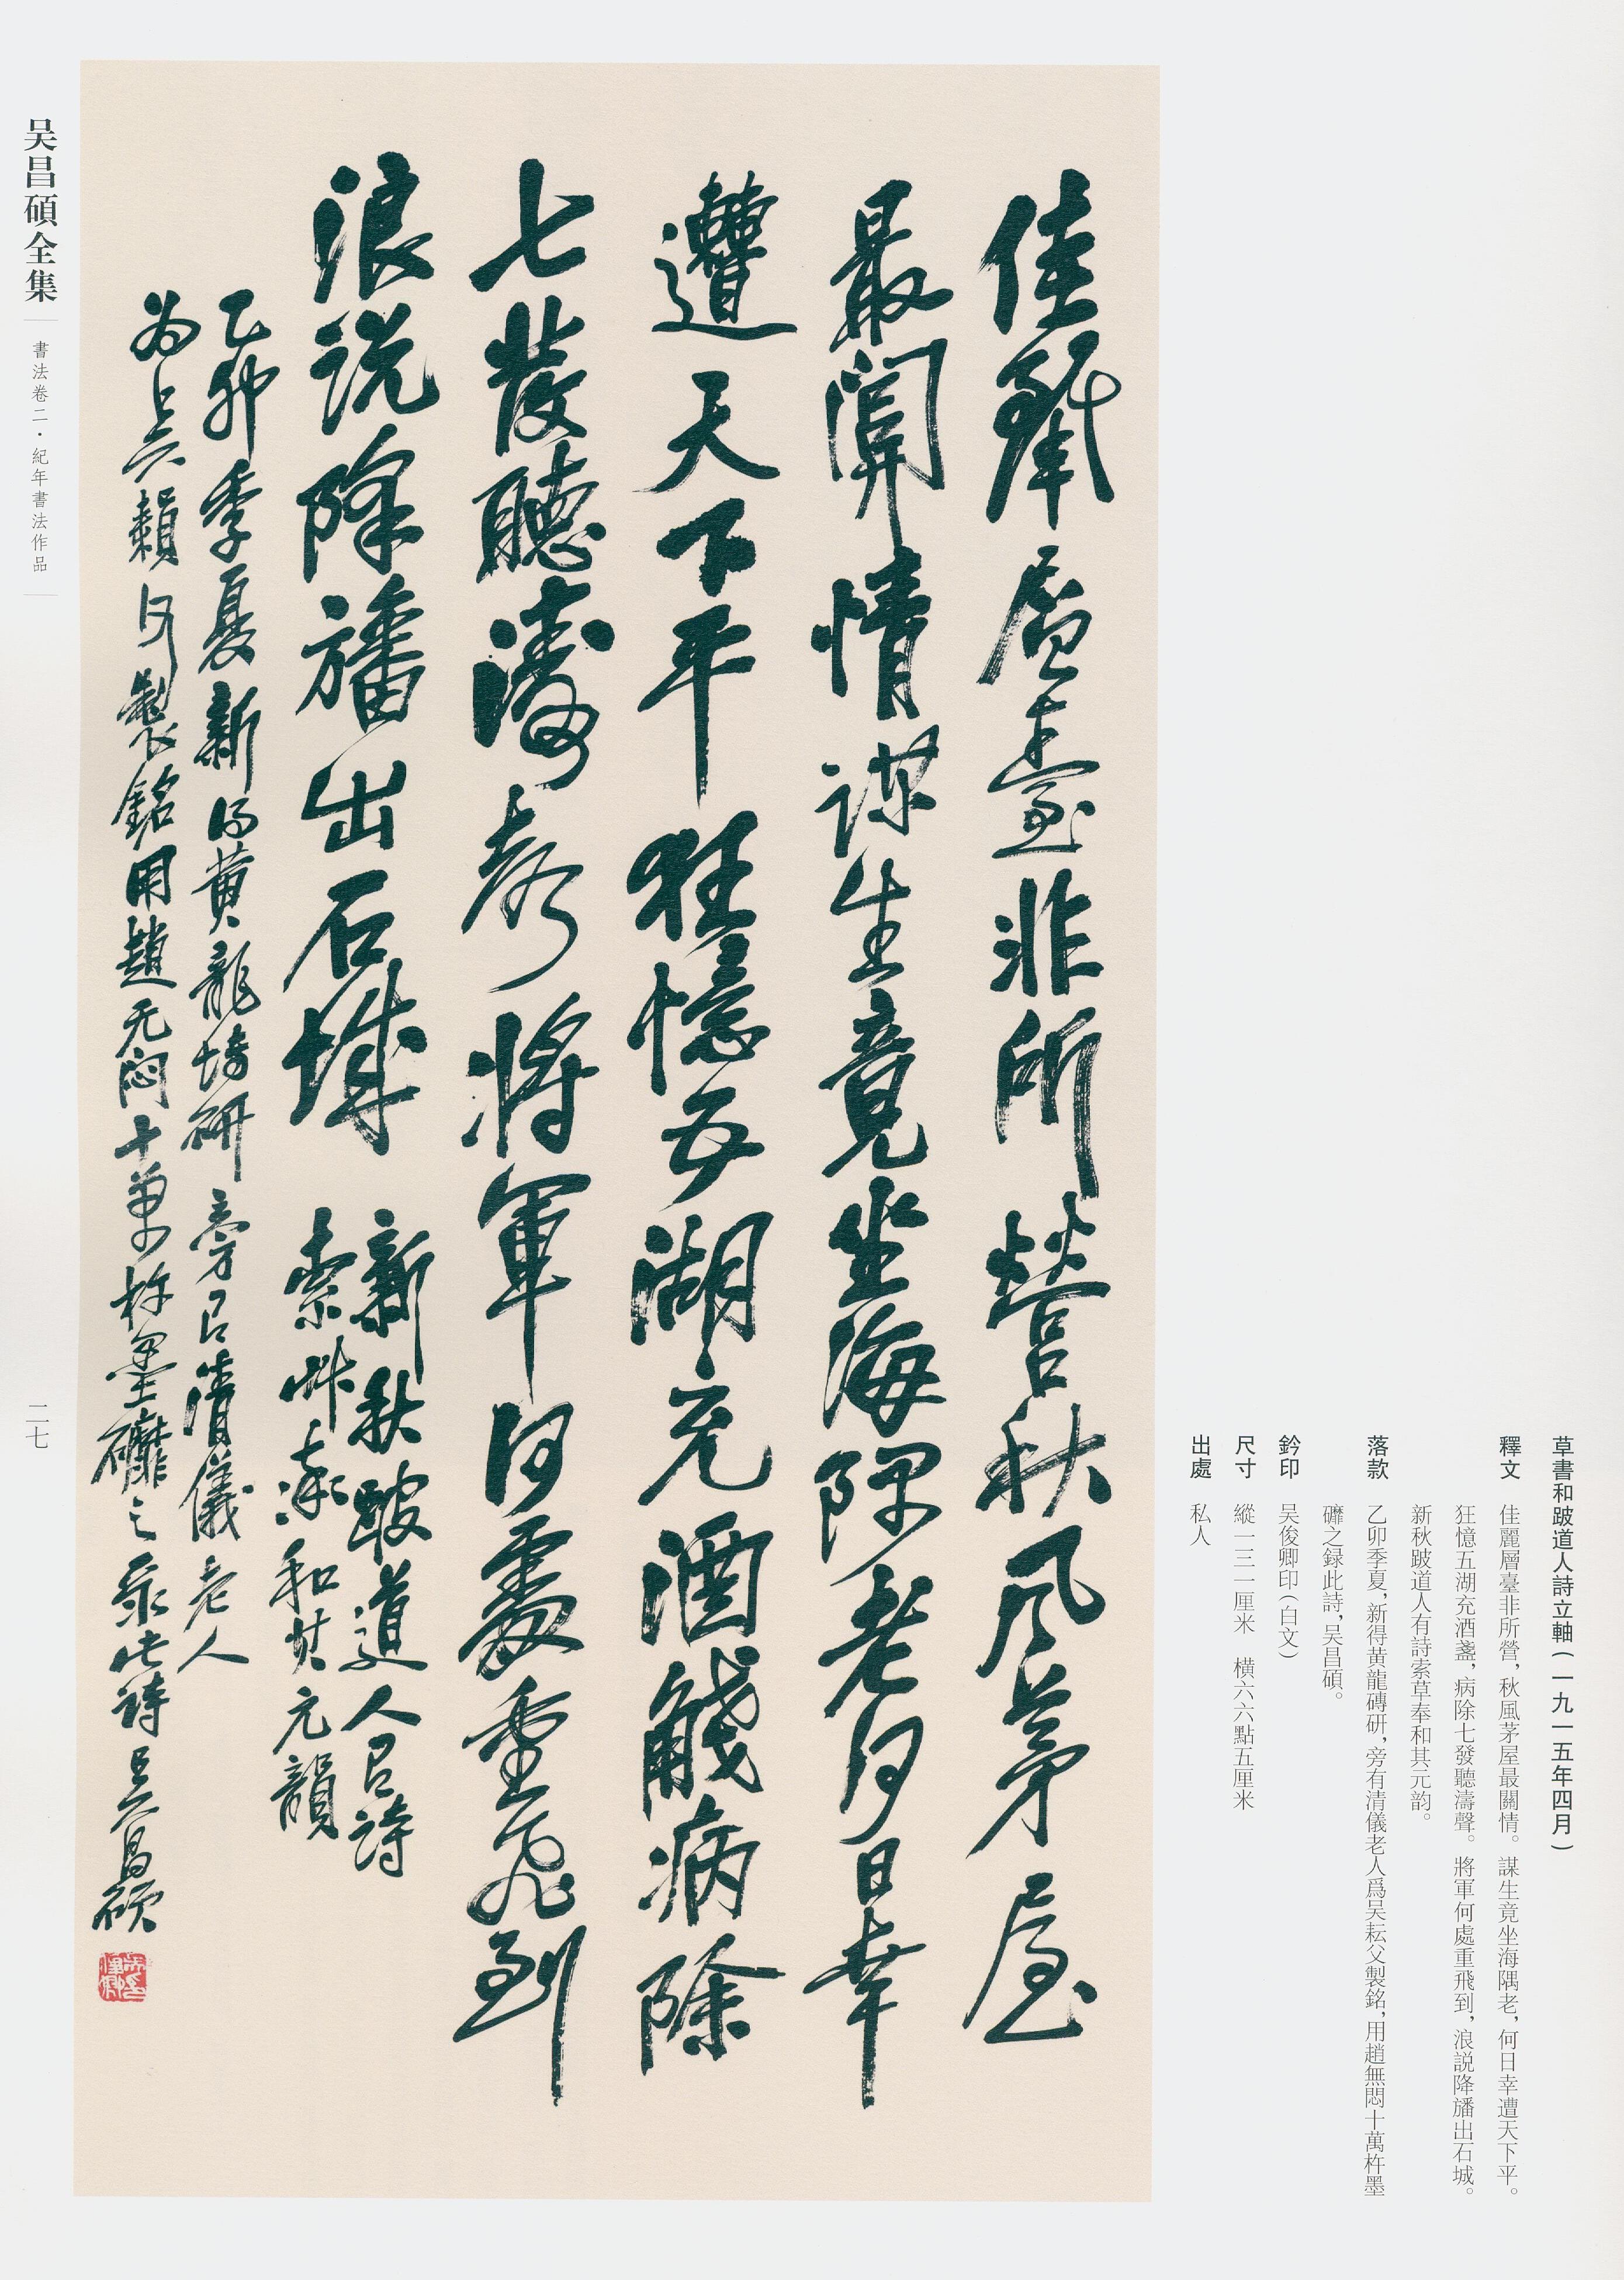 草書和跛道人詩立軸(一九一五年四月)
釋文 佳麗層臺非所營,秋風茅屋最關情。謀生竟坐海隅老,何日幸遭天下平。
狂憶五湖充酒盞,病除七發聽濤聲。將軍何處重飛到,浪説降旛出石城。
新秋跛道人有詩索草奉和其元韵。
落款 乙卯季夏,新得黄龍磚研,旁有清儀老人爲吴耘父製銘,用趙無悶十萬杵墨
礳之録此詩,吴昌碩。
鈐印 吴俊卿印(白文)
尺寸 縱一三一厘米 横六六點五厘米
出處 私人
佳麗層臺非所營秋風茅屋
最關情謀生竟坐海隅老何日幸
遭天下平狂憶五湖充酒醆病除
七發聽濤聲將軍何處重飛到
浪说降旛出石城
新秋跛道人有詩
索艸奉和其元韻
乙卯季夏新得黄龍塼研旁有清儀老人
为吴 父製銘用趙无闷十萬杵墨礳之录此詩吴昌碩
吴昌碩全集
書法卷二·紀年書法作品
二七